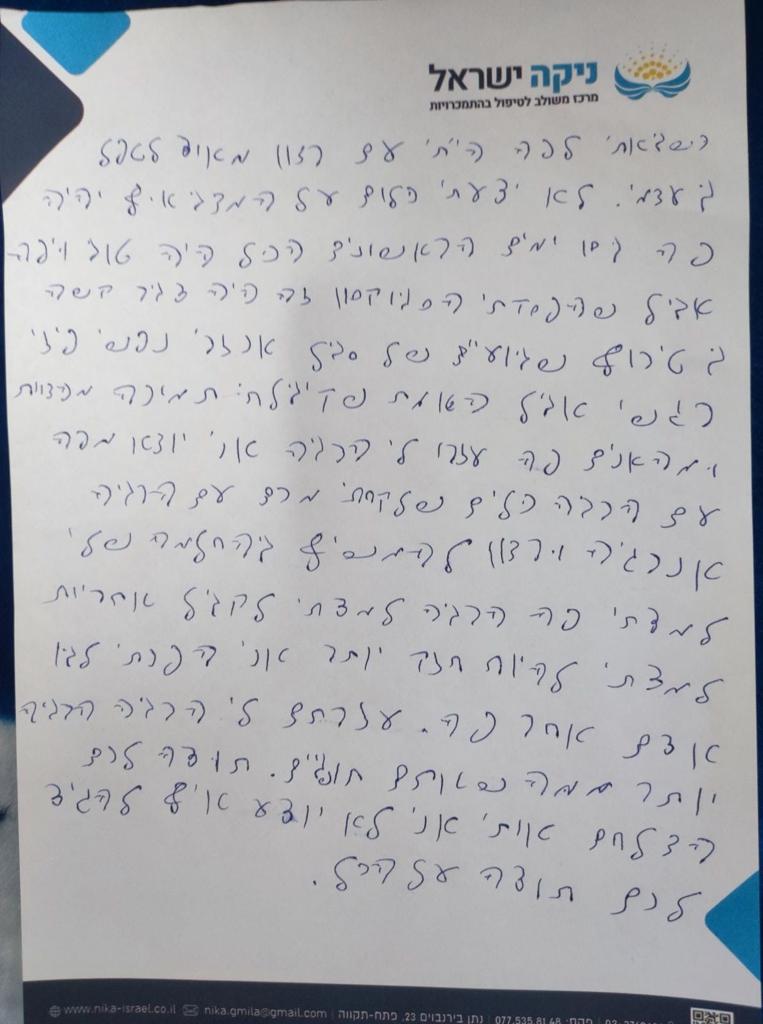 ניקה ישראל
מרכז משולב לטיפול בהתמכרויות
כשבאתי לפה הייתי עם רצון מאוד לטפל
בעצמי. לא ידעתי כלום על המצב איך יהיה
פה בימים הראשונים הכל היה טוב ויפה
אביל שהפסדתי הסבוקסון זה היה צביר קשה
בטירוף שבועיים של סבל אכזרי נפשי פיזי
רגשי אביל האמת שקיבלתי תמיכה מהצוות
ומהאנשים פה עזרו לי הרבה אני יוצא מפה
עם הרבה כלים שלקחתי מכם עם הרבה
אנרגיה ורצון להמשיך בהחלמה שלי
למדתי פה הרבה למדתי לקביל אחריות
למדתי להיות חזק יותר אני הפכתי לבן
אדם אחר פה. עזרתם לי הרבה הרבה
יותר ממה שאתם חושבים. תודה לכם
הצלתם אותי אני לא יודע איך להגיד
לכם תודה על הכל.
www.nika-israel.co.il nika.gmila@gmail.com | נתן בירנבוים 23, פתח-תקווה | פקס: 077.535.81.48